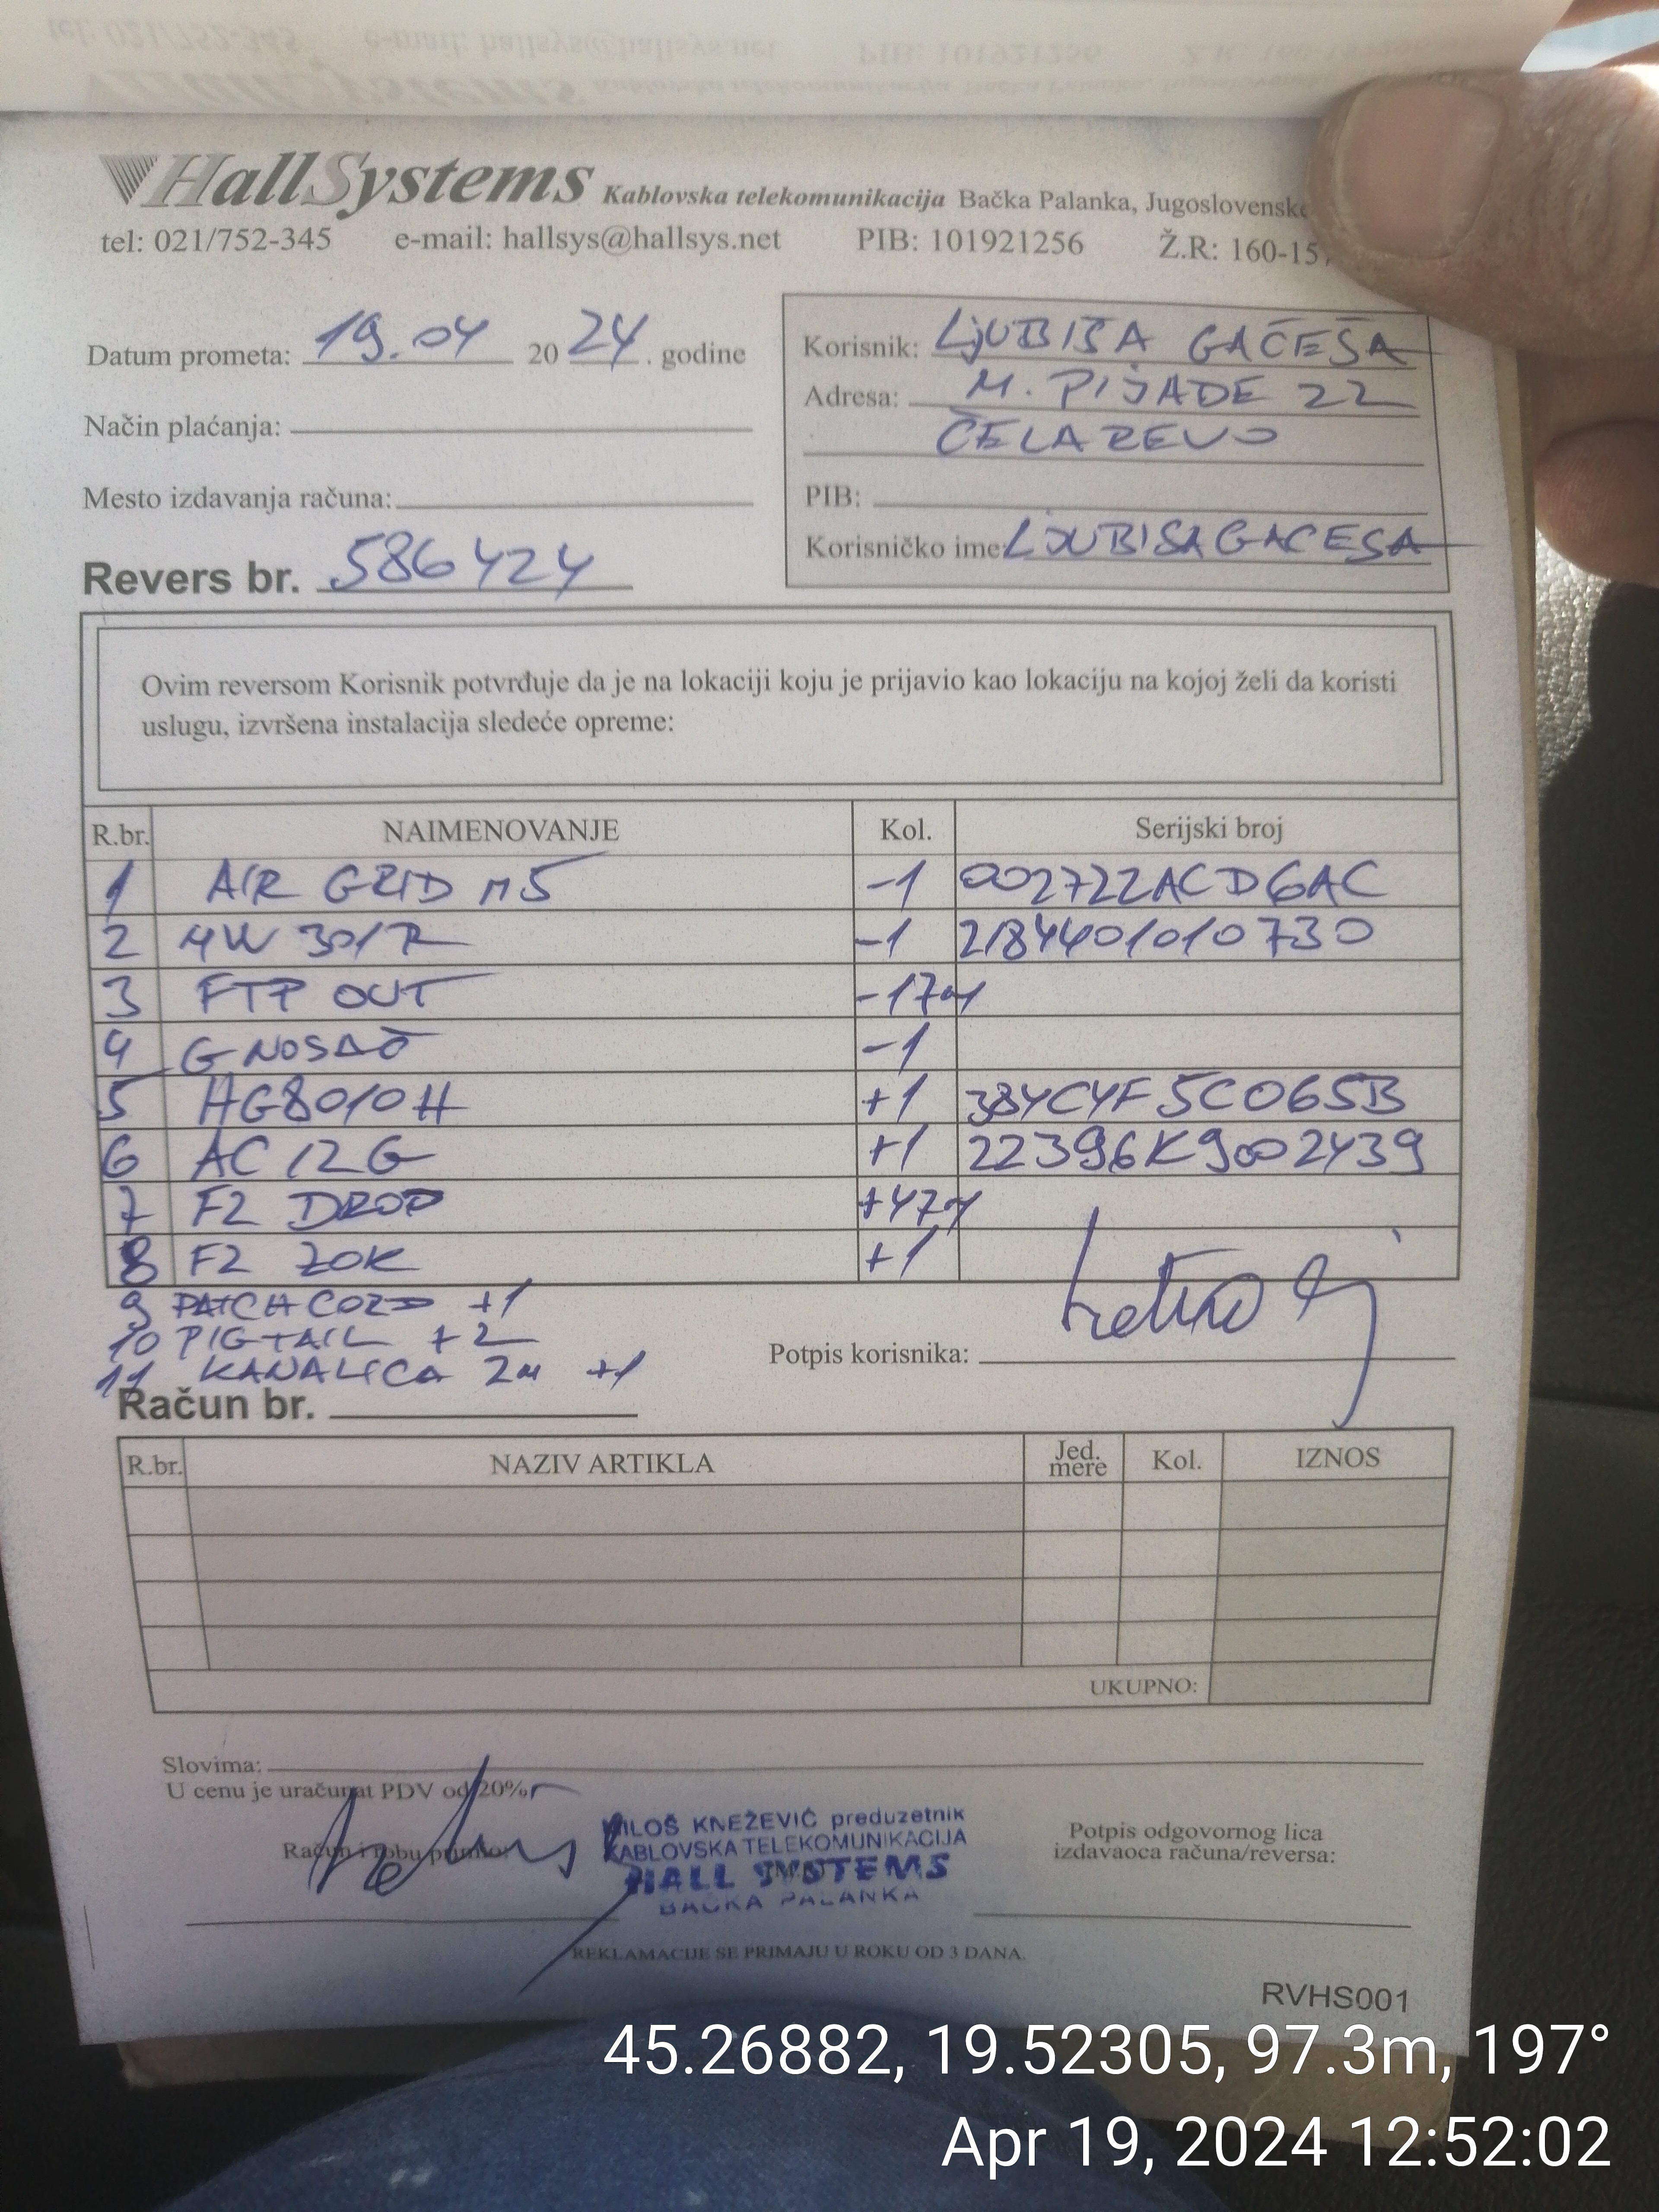 HallSystems Kablovska telekomunikacija Bačka Palanka, Jugoslovensk
tel: 021/752-345 e-mail: hallsys@hallsys.net PIB: 101921256 Ž.R: 160-15
Datum prometa: 19.04 2024. godine
Način plaćanja:
Mesto izdavanja računa:
Revers br. 586424
Korisnik: LJUBIŠA GAČEŠA
Adresa: M. PIJADE 22
ČELAREVO
PIB:
Korisničko ime: LJUBISAGACESA
Ovim reversom Korisnik potvrđuje da je na lokaciji koju je prijavio kao lokaciju na kojoj želi da koristi
uslugu, izvršena instalacija sledeće opreme:
R.br. NAIMENOVANJE Kol. Serijski broj
1 AIR GRID M5 -1 002722ACD6AC
2 MW 301R -1 2184401010730
3 FTP OUT -17m
4 G NOSAČ -1
5 HG8010H +1 384C4F5C065B
6 AC12G +1 22396K9002439
7 F2 DROP +47m
8 F2 ZOK +1
9 PATCH CORD +1
10 PIGTAIL +2
11 KANALICA 2m +1
Potpis korisnika:
Račun br.
R.br. NAZIV ARTIKLA Jed. mere Kol. IZNOS
UKUPNO:
Slovima:
U cenu je uračunat PDV od 20%
Račun i robu primio:
MILOŠ KNEŽEVIĆ preduzetnik
KABLOVSKA TELEKOMUNIKACIJA
HALL SYSTEMS
BAČKA PALANKA
Potpis odgovornog lica
izdavaoca računa/reversa:
REKLAMACIJE SE PRIMAJU U ROKU OD 3 DANA.
RVHS001
45.26882, 19.52305, 97.3m, 197°
Apr 19, 2024 12:52:02